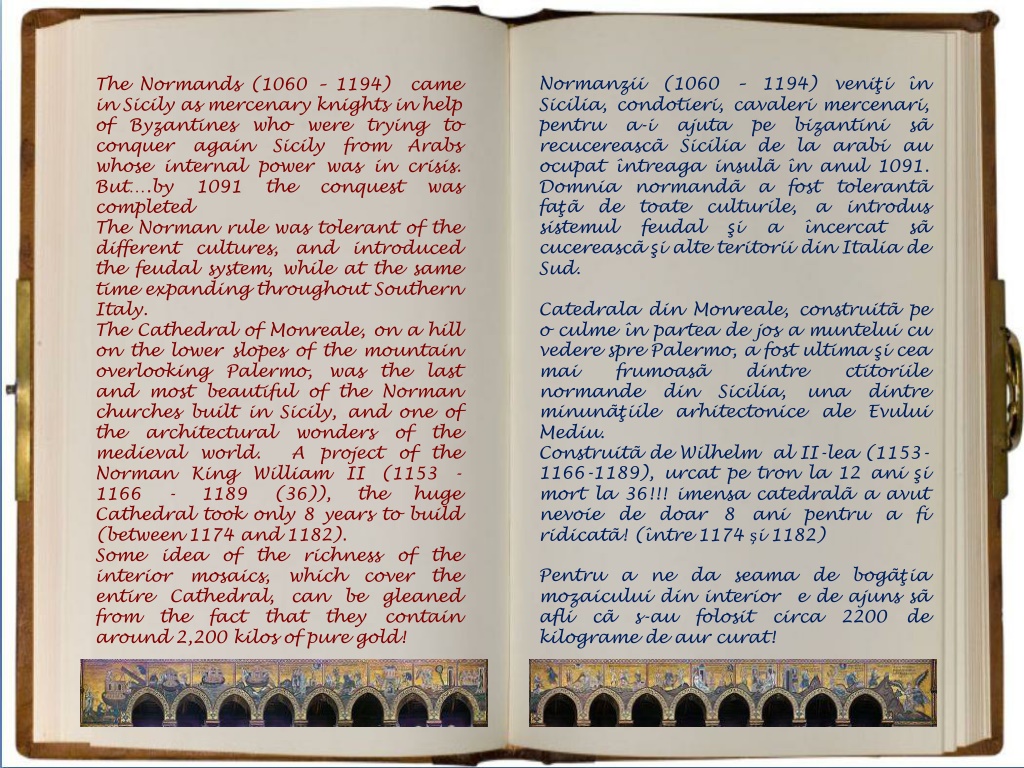 The Normands (1060 – 1194) came
in Sicily as mercenary knights in help
of Byzantines who were trying to
conquer again Sicily from Arabs
whose internal power was in crisis.
But….by 1091 the conquest was
completed
The Norman rule was tolerant of the
different cultures, and introduced
the feudal system, while at the same
time expanding throughout Southern
Italy.
The Cathedral of Monreale, on a hill
on the lower slopes of the mountain
overlooking Palermo, was the last
and most beautiful of the Norman
churches built in Sicily, and one of
the architectural wonders of the
medieval world. A project of the
Norman King William II (1153 -
1166 - 1189 (36)), the huge
Cathedral took only 8 years to build
(between 1174 and 1182).
Some idea of the richness of the
interior mosaics, which cover the
entire Cathedral, can be gleaned
from the fact that they contain
around 2,200 kilos of pure gold!
Normanzii (1060 – 1194) veniţi în
Sicilia, condotieri, cavaleri mercenari,
pentru a-i ajuta pe bizantini sã
recucereascã Sicilia de la arabi au
ocupat întreaga insulã în anul 1091.
Domnia normandã a fost tolerantã
faţã de toate culturile, a introdus
sistemul feudal şi a încercat sã
cucereascã şi alte teritorii din Italia de
Sud.
Catedrala din Monreale, construitã pe
o culme în partea de jos a muntelui cu
vedere spre Palermo, a fost ultima şi cea
mai frumoasã dintre ctitoriile
normande din Sicilia, una dintre
minunãţiile arhitectonice ale Evului
Mediu.
Construitã de Wilhelm al II-lea (1153-
1166-1189), urcat pe tron la 12 ani şi
mort la 36!!! imensa catedralã a avut
nevoie de doar 8 ani pentru a fi
ridicatã! (între 1174 şi 1182)
Pentru a ne da seama de bogãţia
mozaicului din interior e de ajuns sã
afli cã s-au folosit circa 2200 de
kilograme de aur curat!